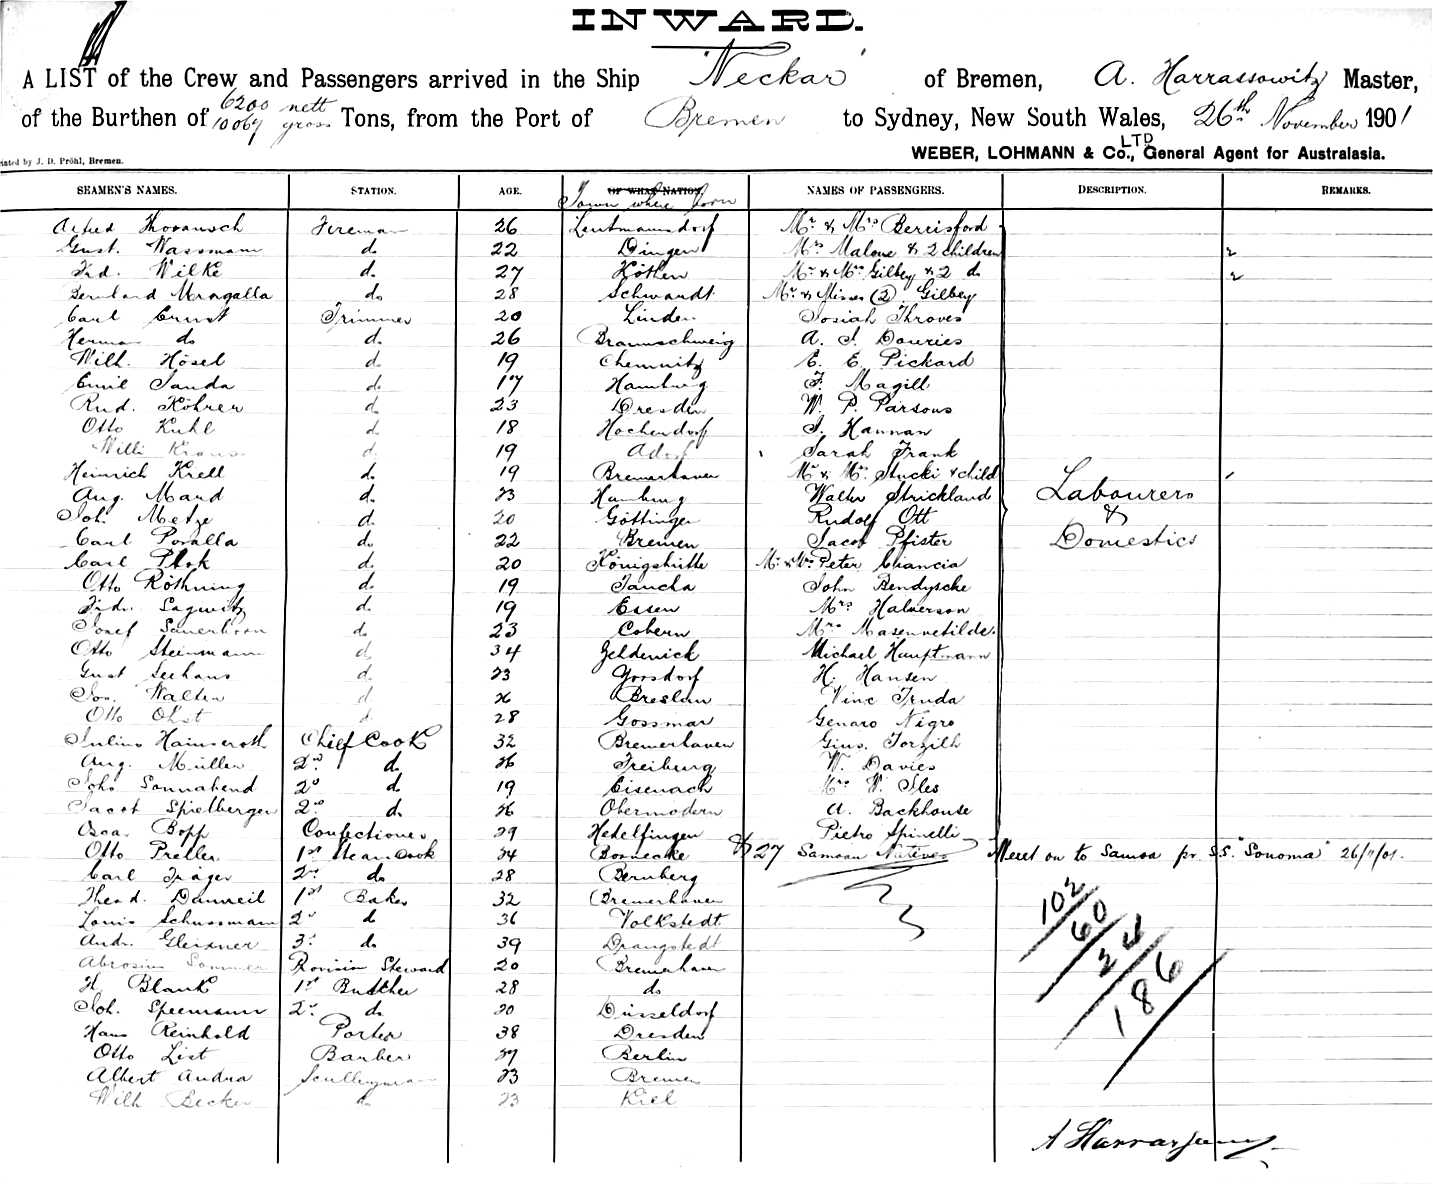 INWARD.
A LIST of the Crew and Passengers arrived in the Ship "Neckar" of Bremen, A. Harrassowitz Master,
of the Burthen of 6200 nett 10069 gross Tons, from the Port of Bremen to Sydney, New South Wales, 26th November 1901
Printed by J. D. Pröhl, Bremen.
WEBER, LOHMANN & Co., LTD General Agent for Australasia.
SEAMEN'S NAMES. STATION. AGE. OF WHAT NATION. Town where born NAMES OF PASSENGERS. DESCRIPTION. REMARKS.
Alfred Fireman 26 Leutmannsdorf Mr & Mrs Berrisford
Gust. Wassmann do 22 Dingen Mrs Malone & 2 children 2
Frd. Wilke do 27 Köthen Mr & Mrs Gilbey & 2 do 2
Bernhard Mrogalla do 28 Schwandt Mr & Misses (2) Gilbey
Carl Ernst Trimmer 20 Linden Josiah Throves
Herman do do 26 Braunschweig A. J. Douries
Wilh. Hösel do 19 Chemnitz E. E. Pickard
Emil Janda do 17 Hamburg F. Magill
Rud. Köhrer do 23 Dresden W. P. Parsons
Otto Kuhl do 18 Hochendorf J. Hannan
Willi Kraus do 19 Adorf Sarah Frank
Heinrich Krell do 19 Bremerhaven Mr & Mrs Stucki & child 1
Aug. Mard do 23 Hamburg Walter Strickland Labourers
Joh. Metze do 20 Göttingen Rudolf Ott &
Carl Poralla do 22 Bremen Jacob Pfister Domestics
Carl Plok do 20 Königshütte Mr & Mrs Peter Chancia
Otto Röthning do 19 Taucha John Bendyscke
Frdr. Sagwitz do 19 Essen Mrs Halverson
Josef Sauerborn do 23 Cobern Mrs
Otto Steinmann do 34 Zeldenick Michael Hauptmann
Gust Seehaus do 23 Gorsdorf H. Hansen
Jos. Walter do 26 Breslau Vinc Truda
Otto Obst do 28 Gossmar Genaro Nigro
Julius Hainseroth Chief Cook 32 Bremerhaven Gius.
Aug. Müller 2nd do 26 Freiburg W. Davies
Johs Sonnabend 2nd do 19 Eisenach Mrs W. Iles
Jacob Spielberger 2nd do 26 Obermodern A. Backhouse
Oscar Bopp Confectioner 29 Hedelfingen Pietro Spinelli
Otto Preller 1st Steam Cook 24 Borneake & 27 Samoan Natives Went on to Samoa pr S.S. "Sonoma" 26/11/01.
Carl Träger 2nd do 28 Bernberg
Theod. Damreil 1st Baker 32 Bremerhaven
Louis Schussmann 2nd do 36 Volkstedt
Andr. Gleixner 3d do 39 Drangstedt
Abrosius Sommer Provision Steward 20 Bremerhaven
H. Blank 1st Butcher 28 do
Joh. Speemann 2nd do 20 Düsseldorf
Hans Reinhold Porter 38 Dresden
Otto List Barber 27 Berlin
Albert Andrea Sculleryman 23 Bremen
Wilh Becker do 23 Kiel
102
60
24
186
A Harrassowitz